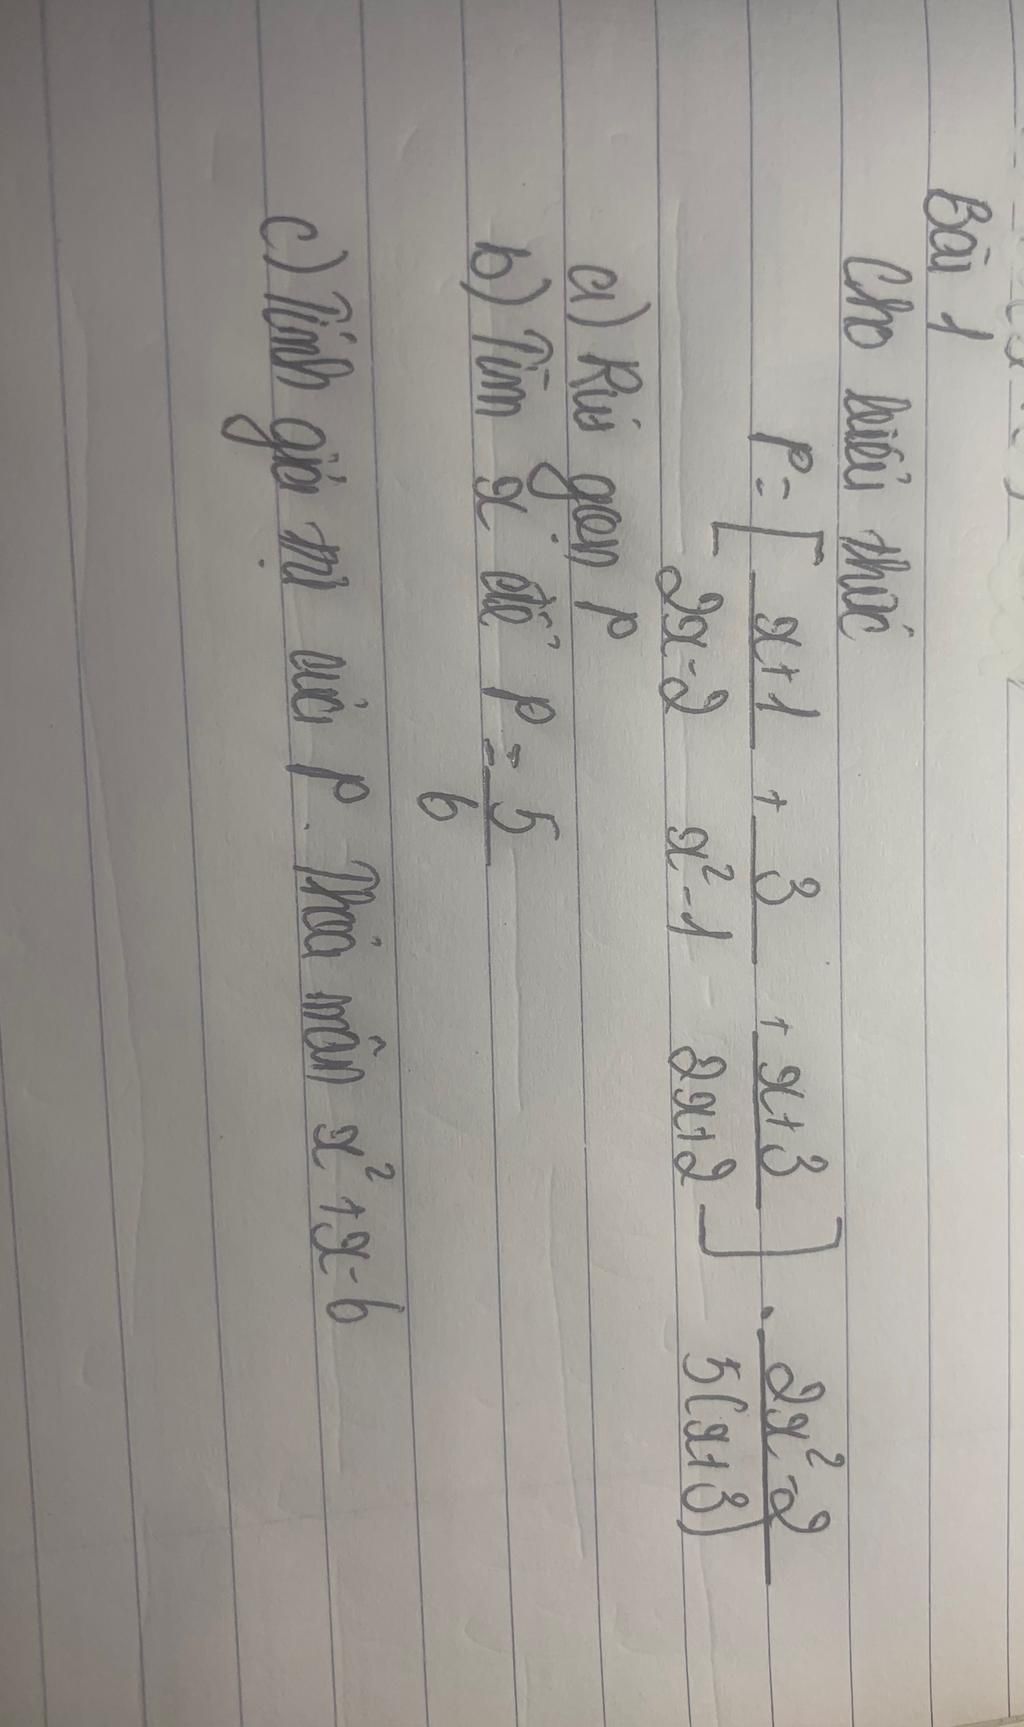 Bài 1
Cho biểu thức
P = [ (x+1)/(2x-2) + 3/(x²-1) + (x+3)/(2x+2) ] . (2x²-2)/(5(x+3))
a) Rút gọn P
b) Tìm x để P = 5/6
c) Tính giá trị của P. Thỏa mãn x² + x - 6